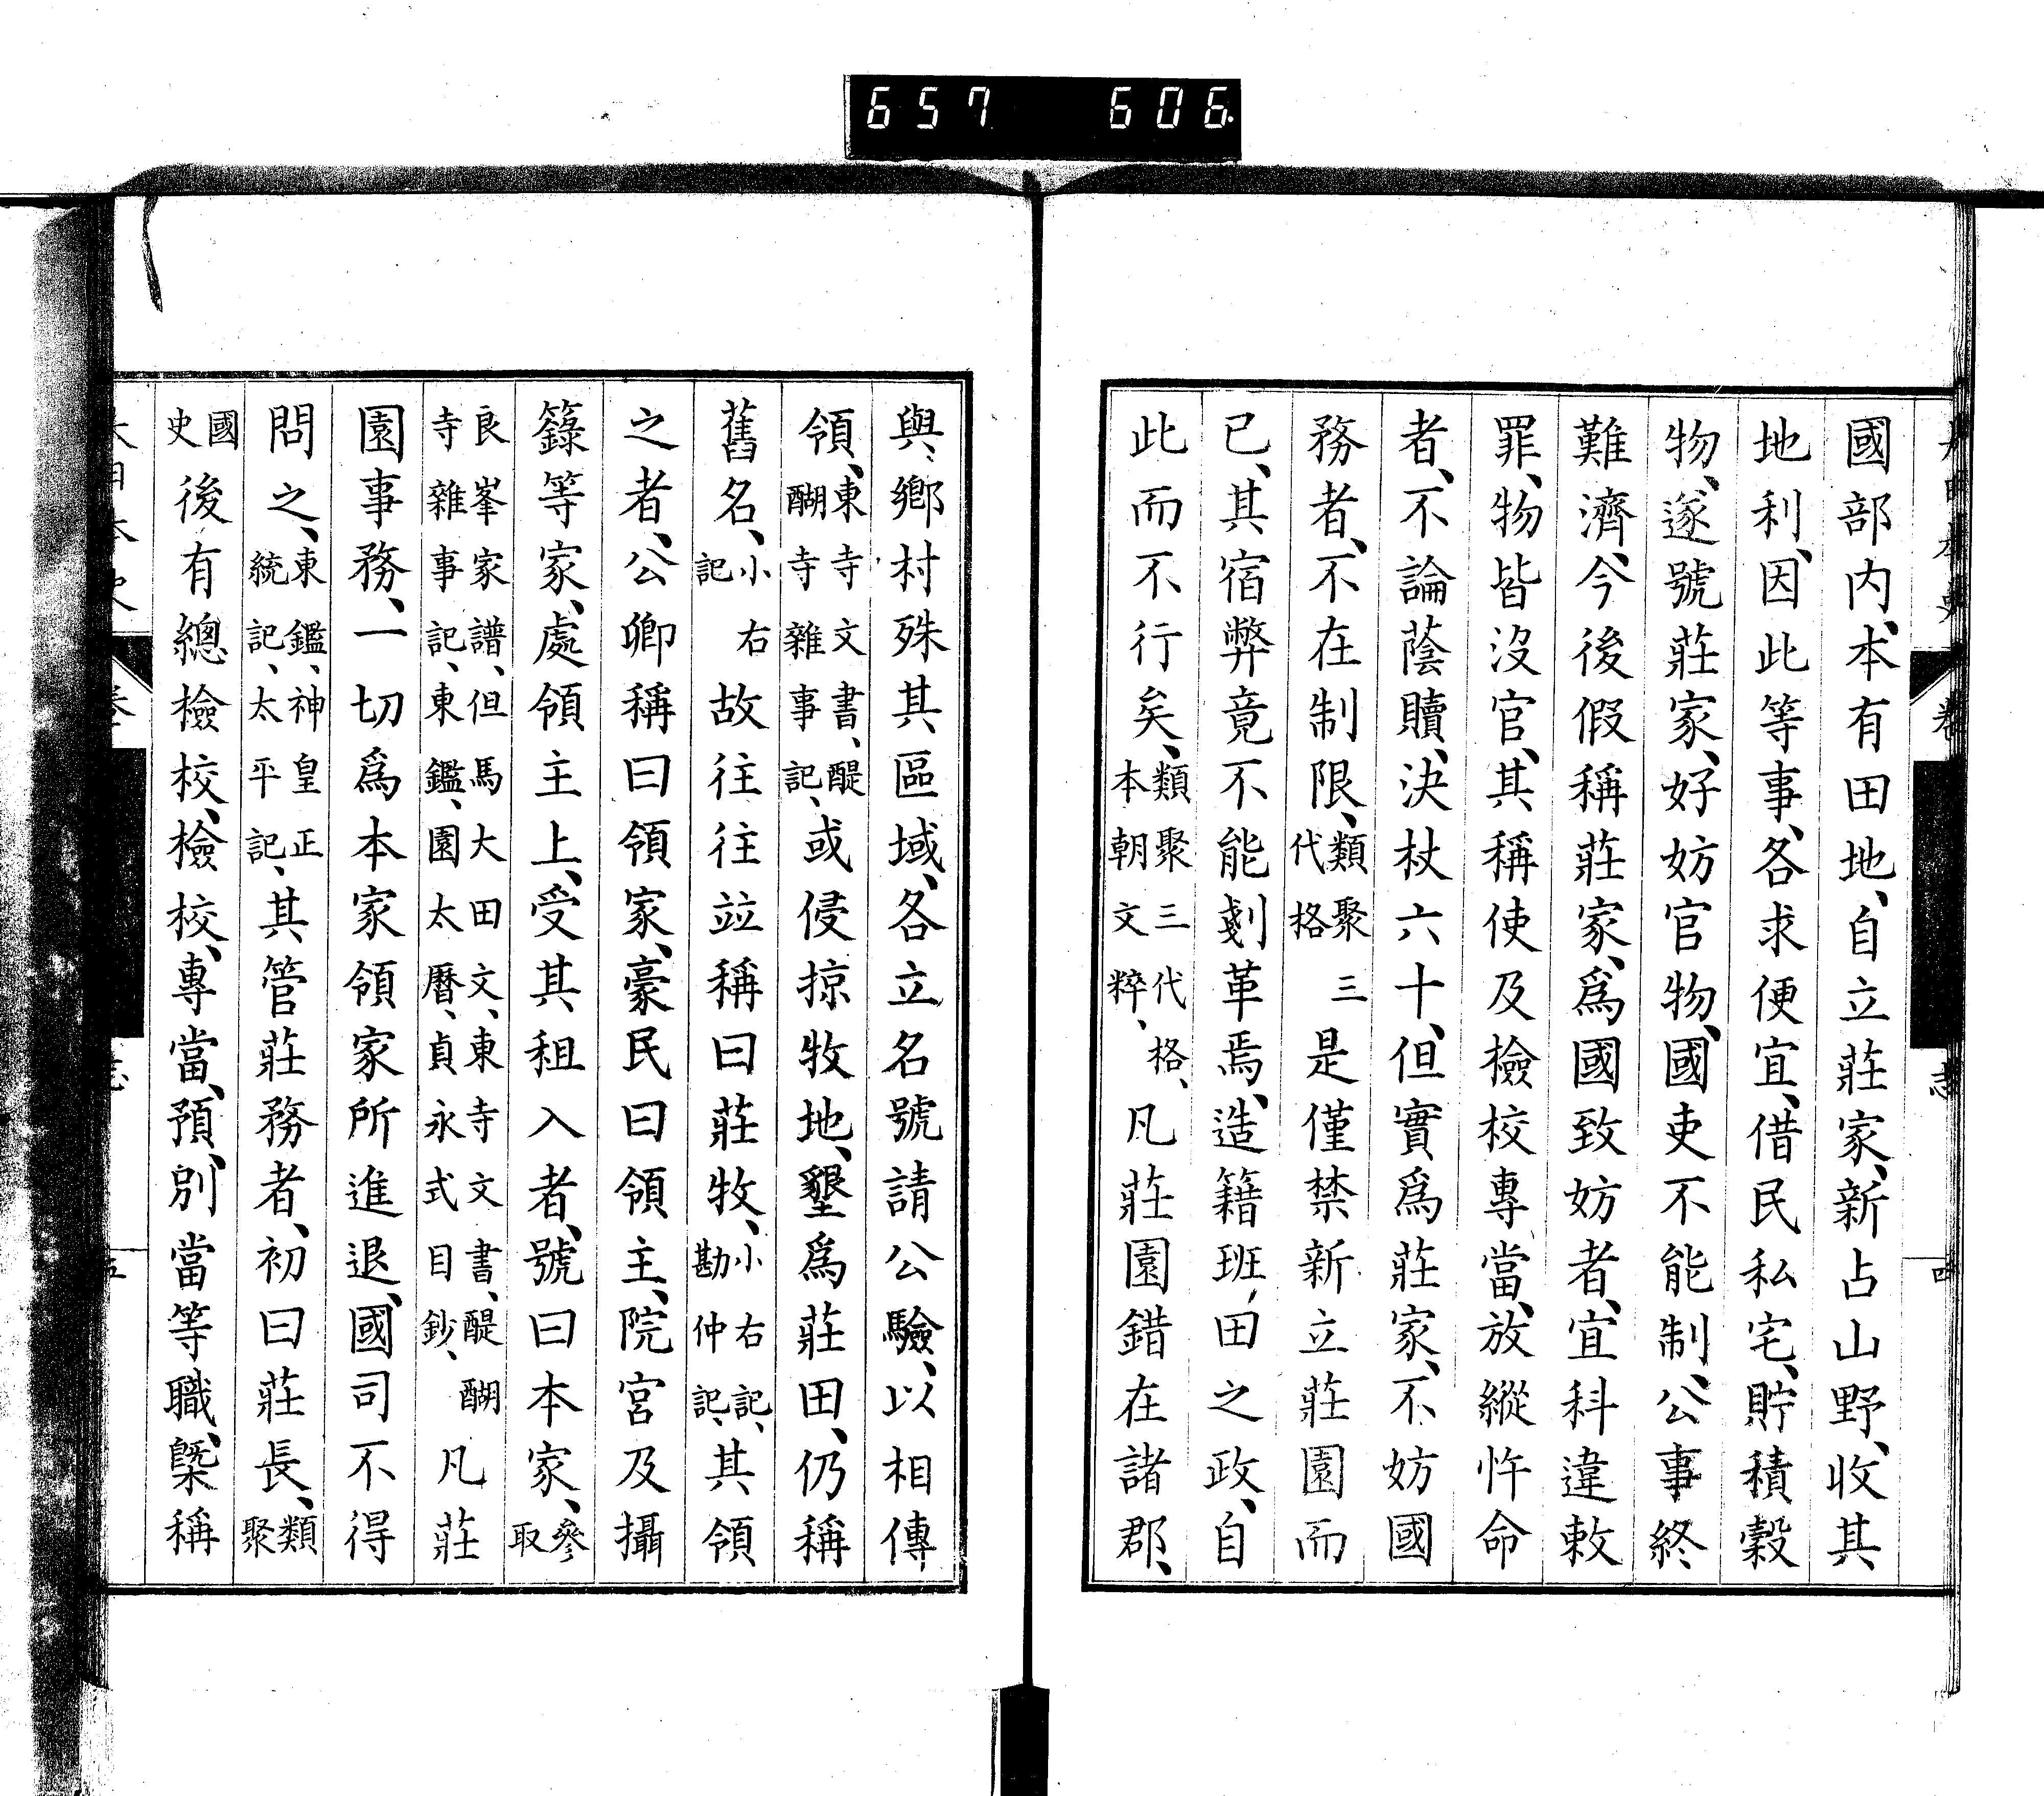 657 606
國部内、本有田地、自立莊家、新占山野、收其
地利、因此等事、各求便宜、借民私宅、貯積穀
物、遂號莊家、好妨官物、國吏不能制、公事終
難濟、今後假稱莊家、爲國致妨者、宜科違敕
罪、物皆沒官、其稱使及檢校專當、放縱忤命
者、不論蔭贖、決杖六十、但實爲莊家、不妨國
務者、不在制限、類聚三代格是僅禁新立莊園而
已、其宿弊竟不能剗革焉、造籍班田之政、自
此而不行矣、類聚三代格、本朝文粹、凡莊園錯在諸郡、
與鄉村殊其區域、各立名號請公驗、以相傳
領、東寺文書、醍醐寺雜事記、或侵掠牧地、墾爲莊田、仍稱
舊名、小右記故往往竝稱曰莊牧、小右記、勘仲記、其領
之者、公卿稱曰領家、豪民曰領主、院宮及攝
籙等家、處領主上、受其租入者、號曰本家、參取
良峯家譜、但馬大田文、東寺文書、醍醐寺雜事記、東鑑、園太曆、貞永式目鈔、凡莊
園事務、一切爲本家領家所進退、國司不得
問之、東鑑、神皇正統記、太平記、其管莊務者、初曰莊長、類聚
國史後有總檢校、檢校、專當、預、別當等職、槩稱
大日本史
卷
志
五